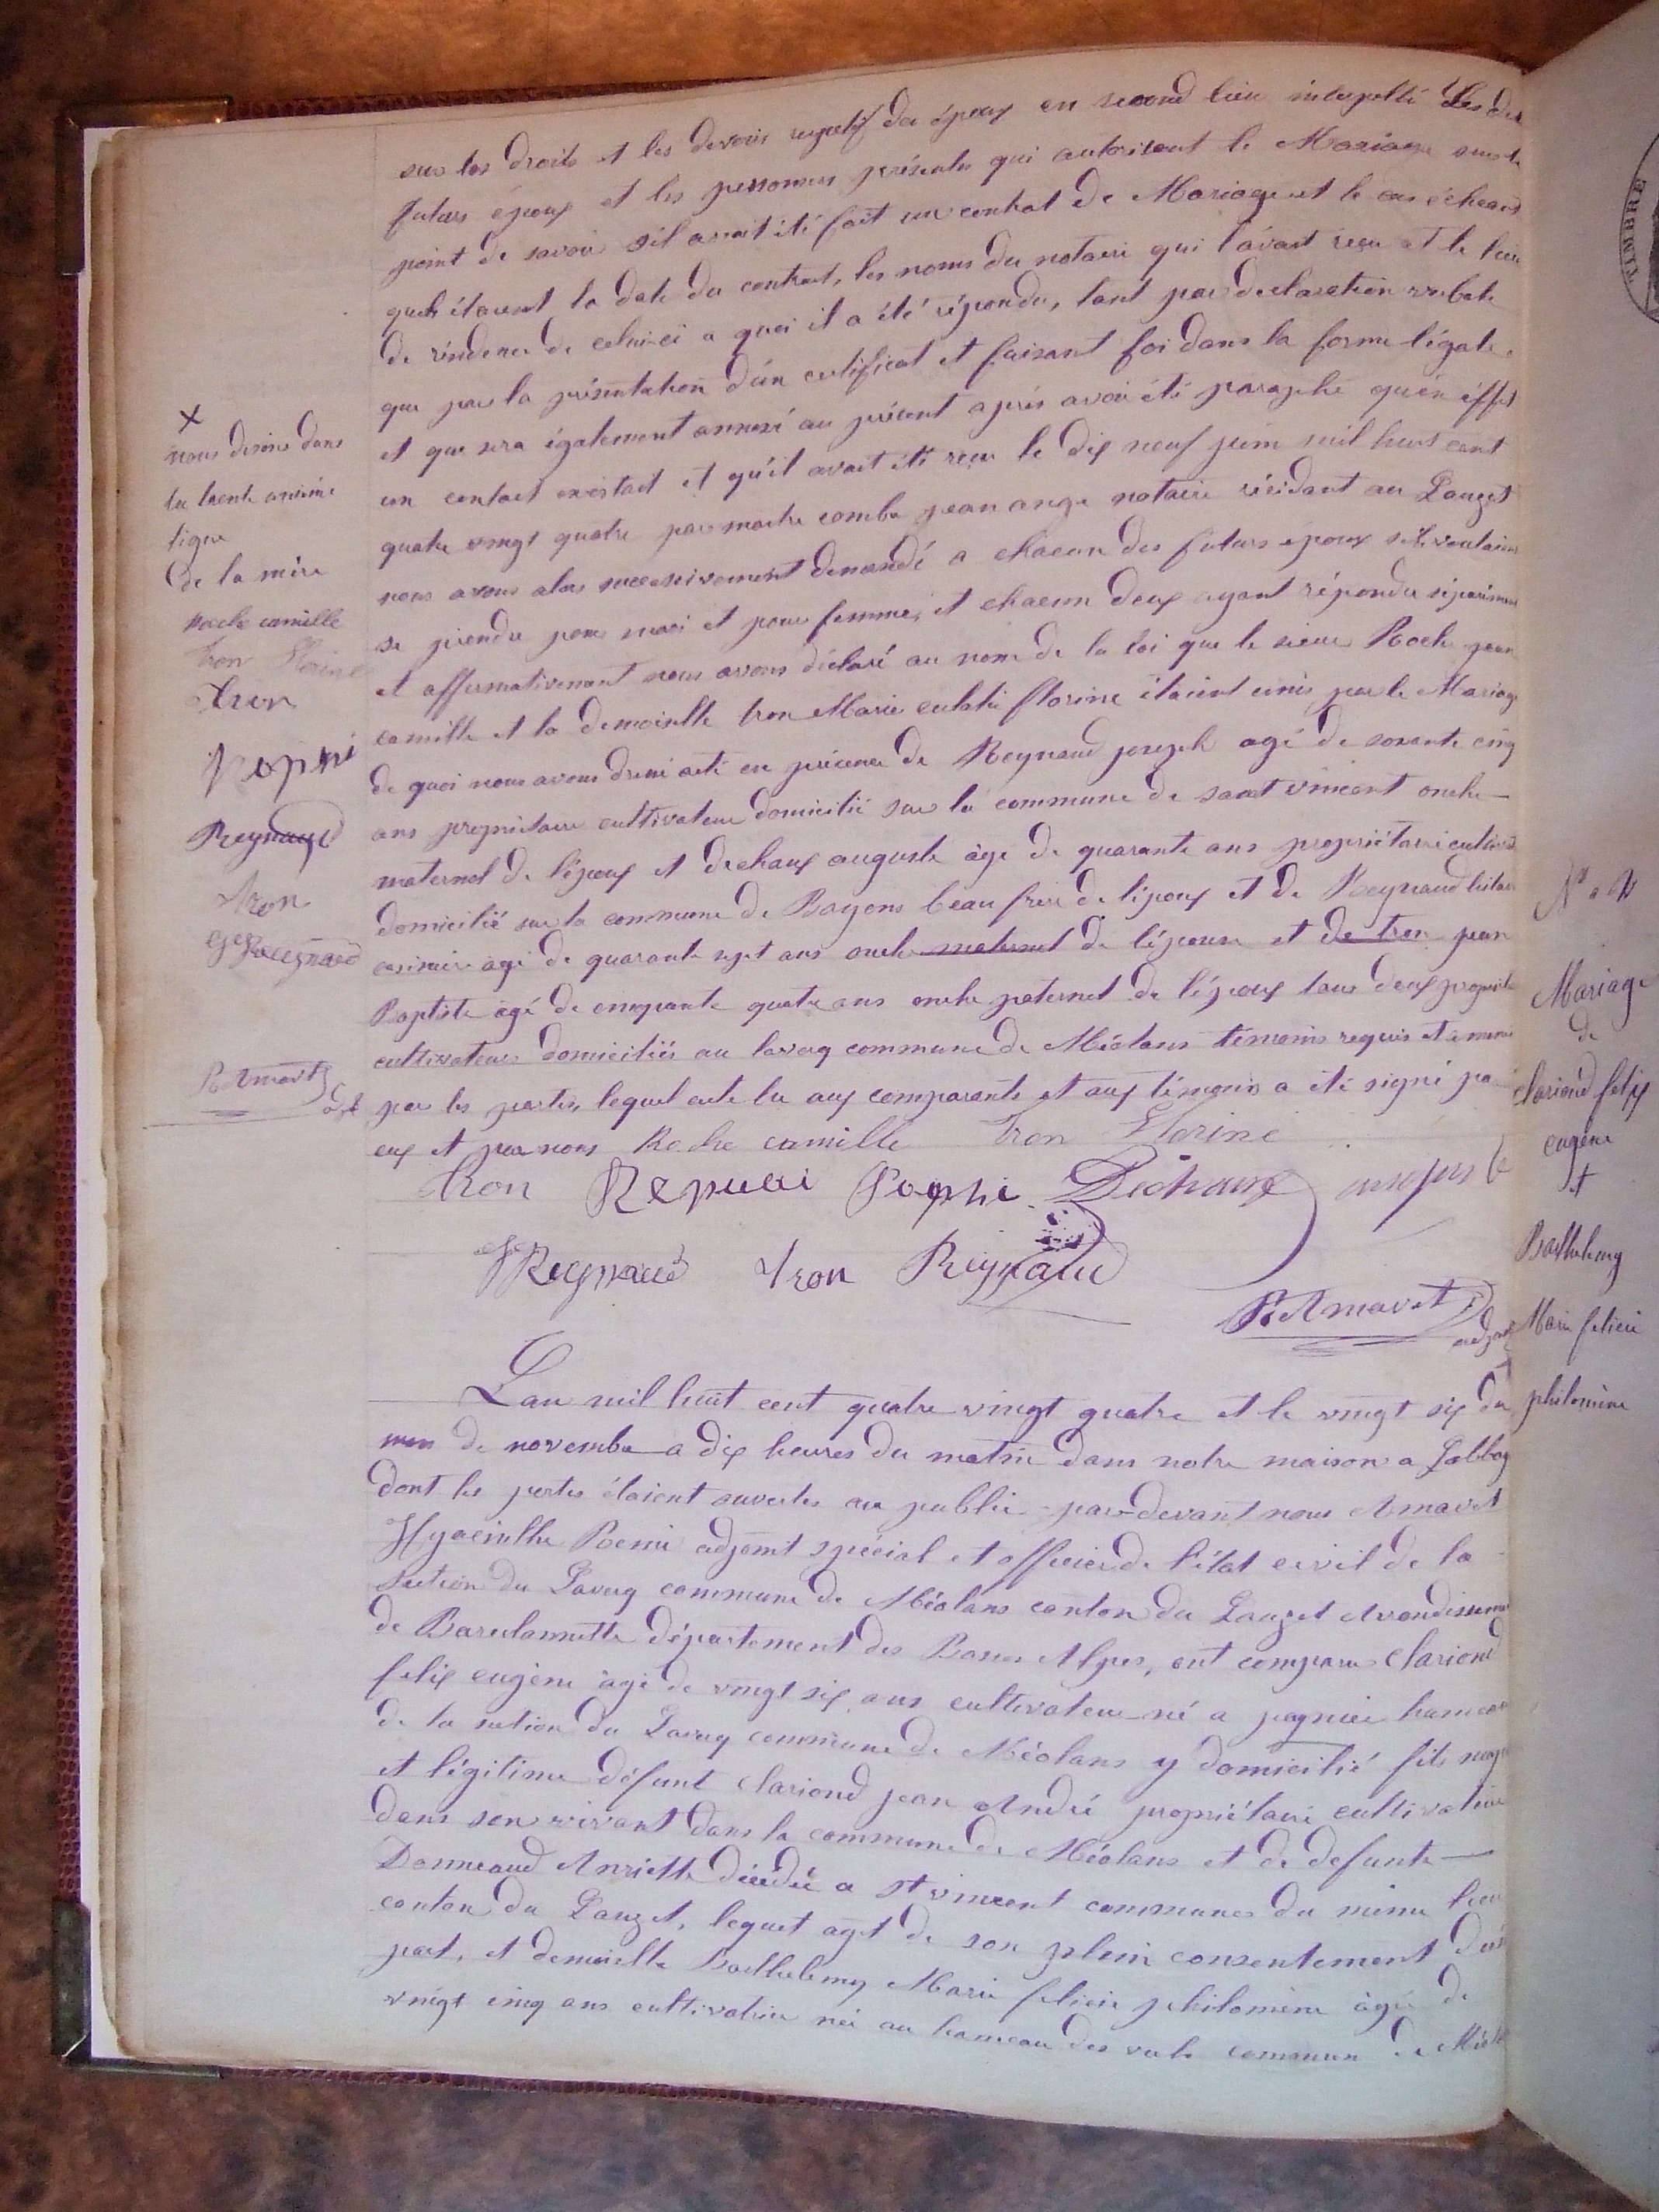 sur les droits et les devoirs respectif des époux en second lieu interpellé Les dits
futurs époux et les personnes présentes qui autorisent le Mariage sur le
point de savoir s'il avait été fait un contrat de Mariage et le cas échéant
quels étaient la date du contrat, les noms du notaire qui l'avait reçu et le lieu
de résidence de celui-ci a quoi il a été répondu, tant par declaration verbale
que par la présentation d'un certificat et faisant foi dans la forme légale
et que sera également annexé au présent après avoir été paraphé qu'en éffet
un contrat existait et qu'il avait été reçu le dix neuf juin mil huit cent
quatre vingt quatre par maitre combe jean ange notaire résidant au Lauzet
nous avons alors successivement demandé a chacun des futurs époux s'ils voulaient
se prendre pour mari et pour femme, et chacun deux ayant répondu séparément
et affirmativement nous avons déclaré au nom de la loi que le sieur Roche jean
camille et la demoiselle tron Marie eulalie florine étaient unis par le Mariage
de quoi nous avons dressé acte en présence de Reynaud joseph agé de soixante cinq
ans propriétaire cultivateur domicilié sur la commune de saint vincent oncle
maternel de l'époux et dechaux auguste âgé de quarante ans propriétaire cultivat
domicilié sur la commune de Bayons beau frère de l'époux et de Reynaud hilaire
casimir agé de quarante sept ans oncle maternel de l'épouse et de tron jean
Baptiste agé de cinquante quatre ans oncle paternel de l'époux tous deux propriét
cultivateurs domiciliés au laverq commune de Méolans témoins requis et
par les parties, lequel acte lu aux comparants et aux témoins a été signé pa
eux et par nous Roche camille Tron Florine
Tron Dechaux
Reynaud tron Reynaud
R Amavet
adjoint
X
nous disons dans
la trente
ligne
de la mère
roche camille
tron Florine
tron
Reynaud
tron
J Reynaud
R Amavet
adjt
L'an mil huit cent quatre vingt quatre et le vingt six du
mois de novembre a dix heures du matin dans notre maison a Labbaÿ
dont les portes étaient ouvertes au public par-devant nous Amavet
Hyacinthe Remi adjoint spécial et officier de l'état civil de la
section du Laverq commune de Méolans canton du Lauzet Arrondissement
de Barcelonnette département des Basses Alpes, ont comparu Clariond
felix eugène âgé de vingt six ans cultivateur né a hameau
de la section du Laverq commune de Méolans y domicilié fils majeur
et légitime défunt Clariond jean André propriétaire cultivateur
dans son vivant dans la commune de Méolans et de defunte
Donneaud décédée a St vincent communes du même lieu
canton du Lauzet, lequel agit de son plein consentement d'une
part, et demoiselle Barthelemy Marie felicie philomène âgée de
vingt cinq ans cultivatrice née au hameau des commun de Méol
Mariage
de
Clariond felix
eugène
et
Barthelemy
Marie felicie
philomène
TIMBRE